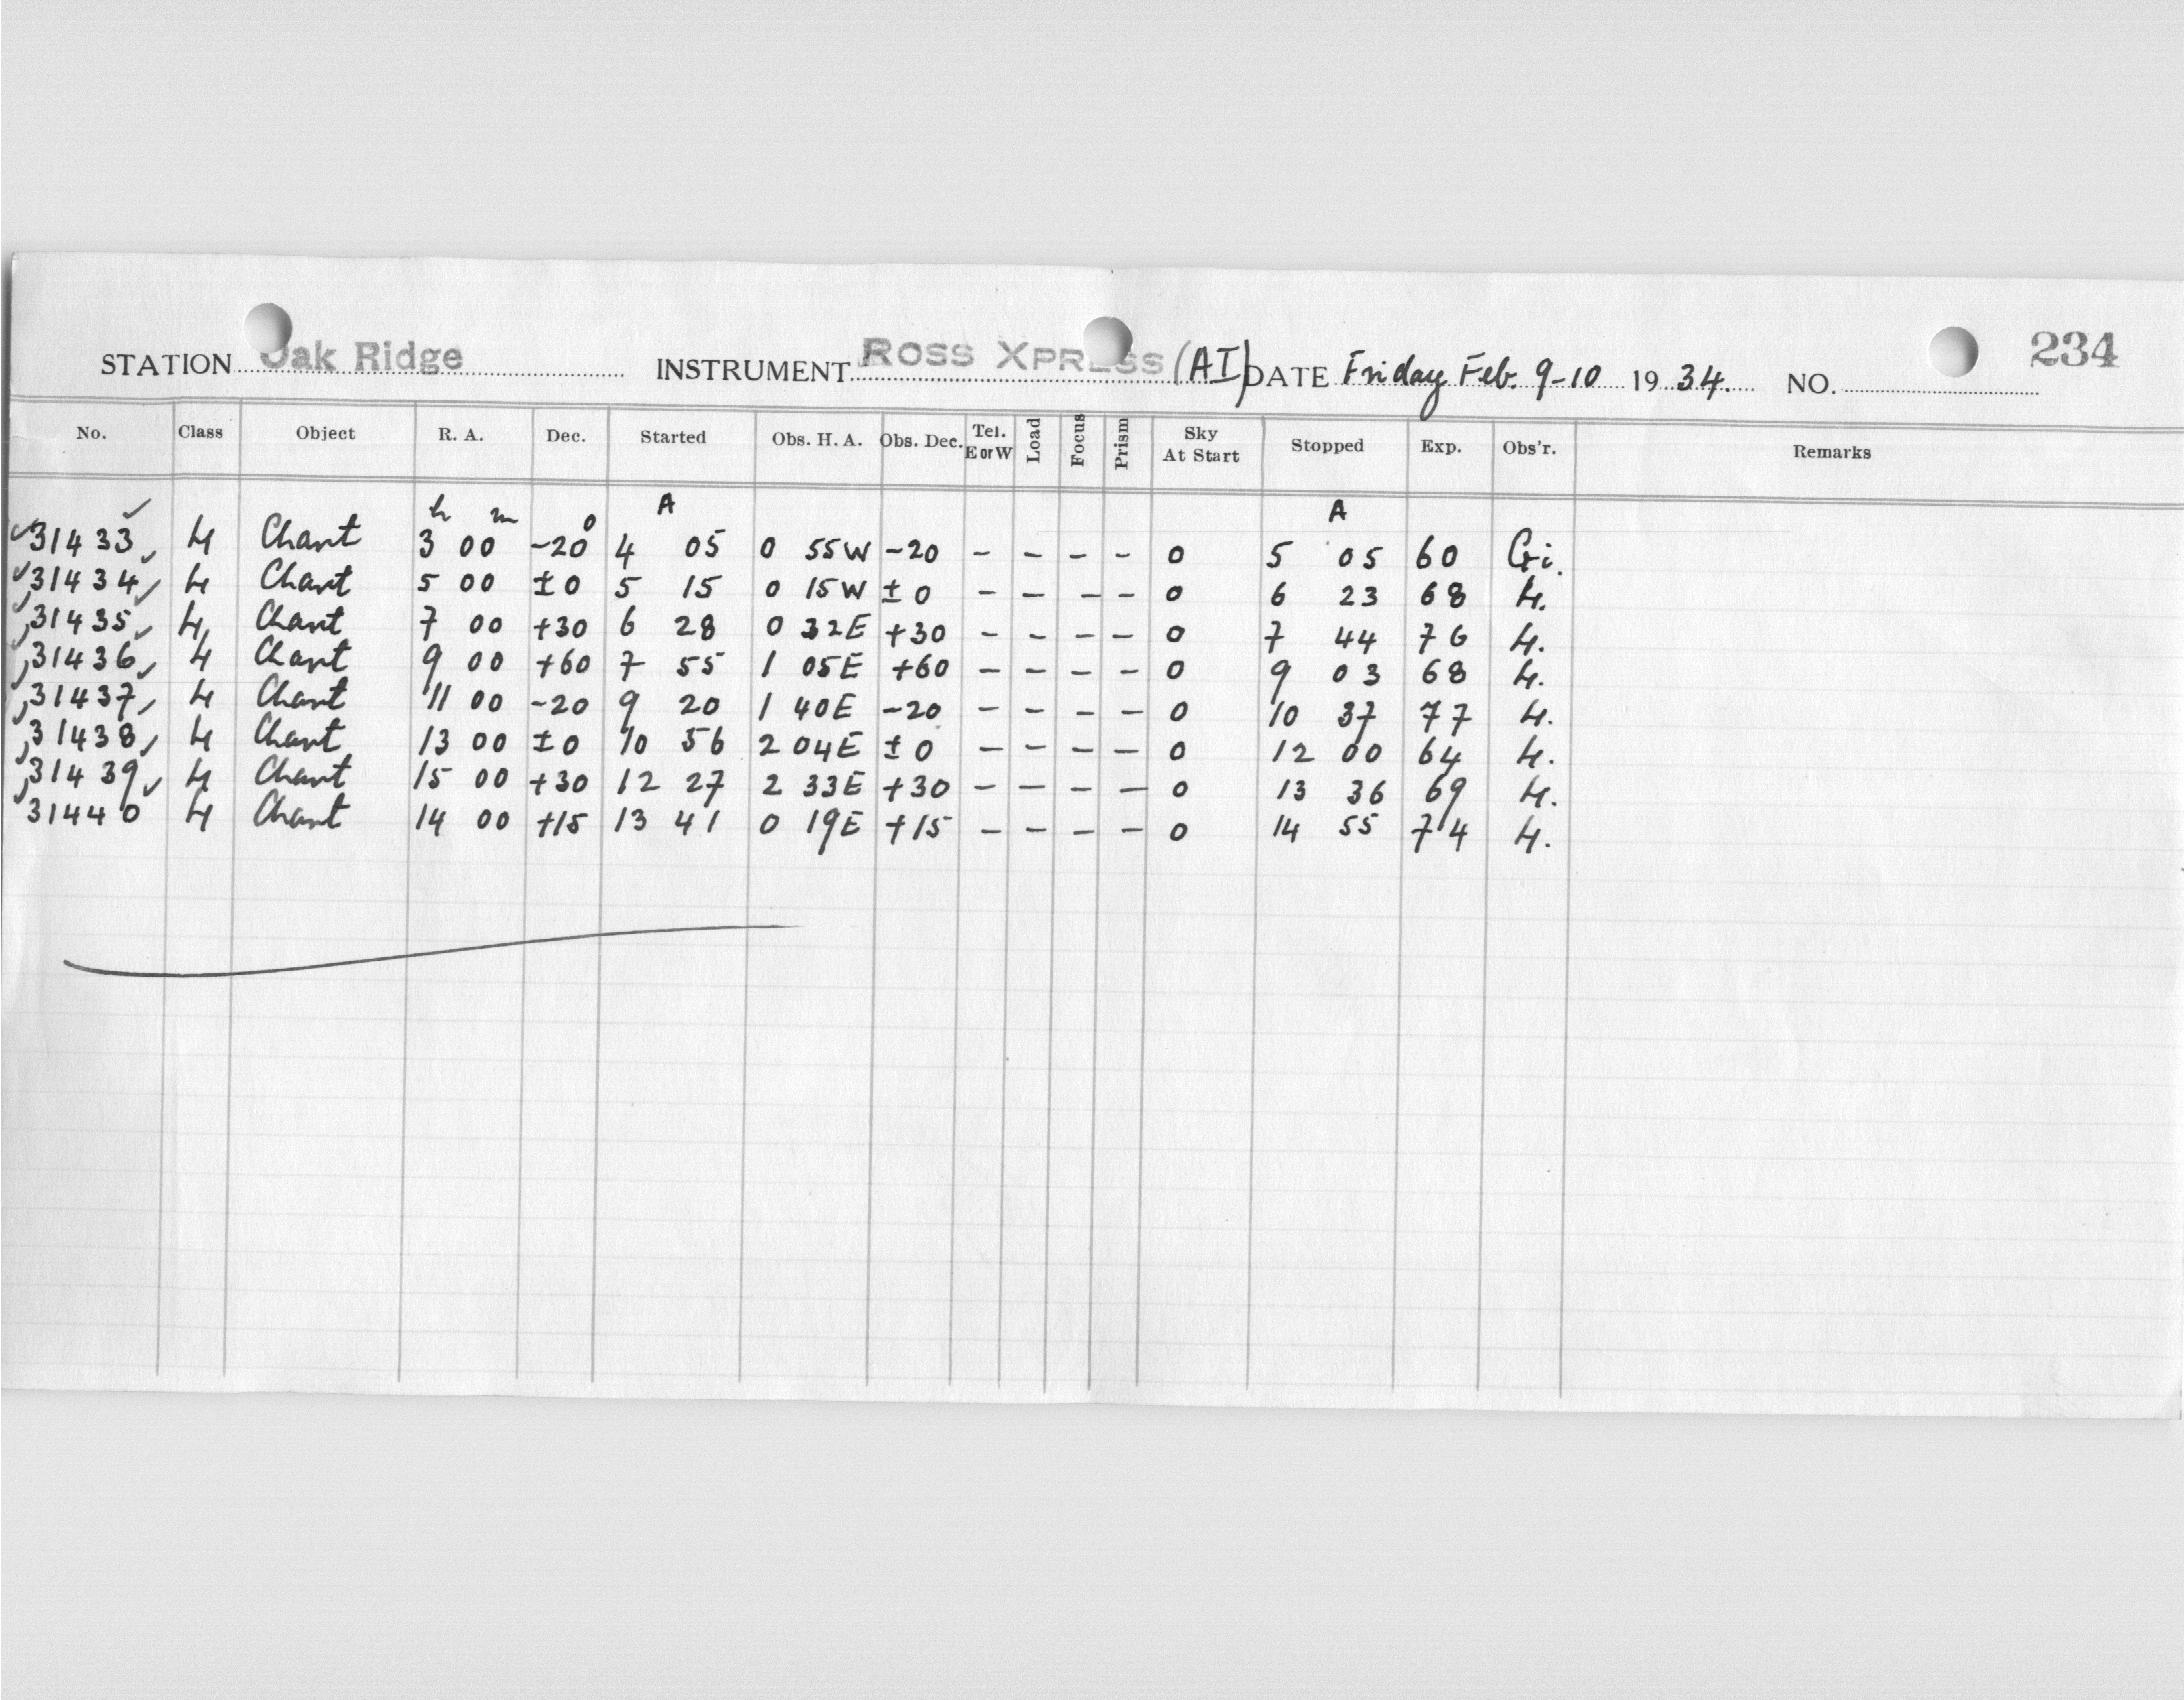 STATION Oak Ridge INSTRUMENT ROSS XPRESS (AI) DATE Friday Feb. 9-10 1934. NO. 234
No. Class Object R. A. Dec. Started Obs. H. A. Obs. Dec. Tel. E or W Load Focus Prism Sky At Start Stopped Exp. Obs'r. Remarks
h m o A A
31433 4 Chart 3 00 -20 4 05 0 55W -20 - - - - 0 5 05 60 Gi.
31434 4 Chart 5 00 ±0 5 15 0 15W ±0 - - - - 0 6 23 68 4.
31435 4 Chart 7 00 +30 6 28 0 32E +30 - - - - 0 7 44 76 4.
31436 4 Chart 9 00 +60 7 55 1 05E +60 - - - - 0 9 03 68 4.
31437 4 Chart 11 00 -20 9 20 1 40E -20 - - - - 0 10 37 77 4.
31438 4 Chart 13 00 ±0 10 56 2 04E ±0 - - - - 0 12 00 64 4.
31439 4 Chart 15 00 +30 12 27 2 33E +30 - - - - 0 13 36 69 4.
31440 4 Chart 14 00 +15 13 41 0 19E +15 - - - - 0 14 55 74 4.